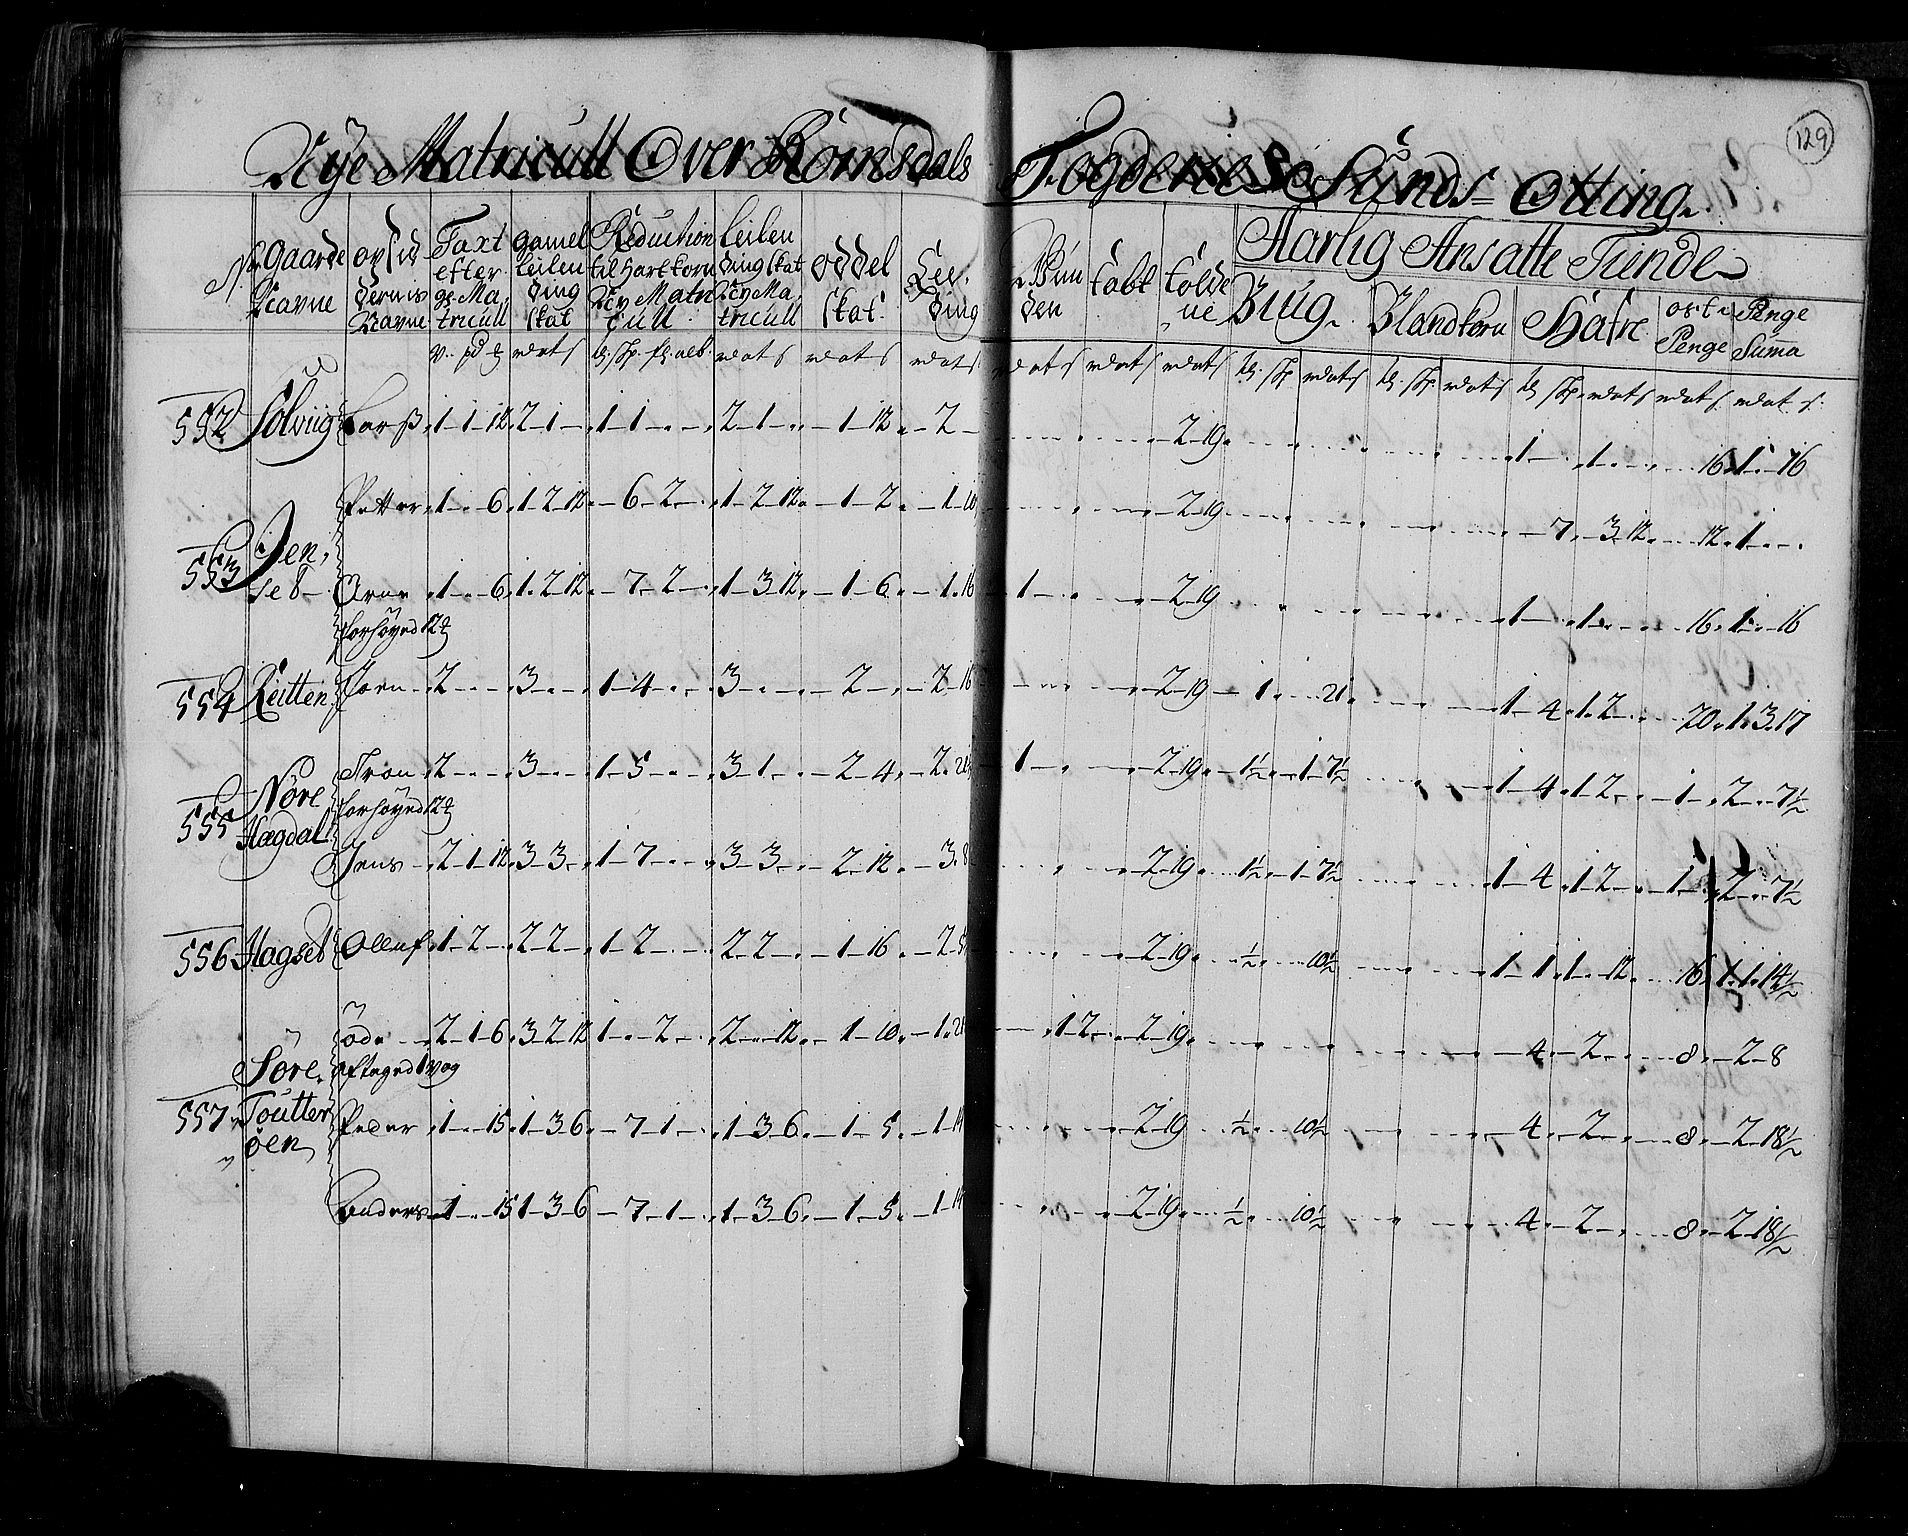 129
Nye Matricull Over Romsdals Fogderie So Sünds Otting
No Gaarde Navne opsid dernis Navne Taxt efter ge Ma tricull gamel leilen ding skat Reduction til hartkorn Ney Matri cull leilen ding skat Ney Ma tricull oddel skat Lei ding Wun den tabt tolde ne Aarlig Ansatte Tiende
Biug Blandkorn Hafre ost Penge Penge Summa
552 Solviig Lars 1 1 12 2 1 1 1 2 1 1 12 2 2 19 1 1 16 1 16
Petter 1 6 1 2 12 6 2 1 2 12 1 2 1 10 2 19 7 3 12 12 1
553 Jen
set Arne 1 6 1 2 12 7 2 1 3 12 1 6 1 16 1 2 19 1 1 16 1 16
forhøyed 12
554 Reitten Jorn 2 3 1 4 3 2 2 16 2 19 1 21 1 4 1 2 20 1 3 17
Tron 2 3 1 5 3 1 2 4 2 21 1 2 19 1½ 1 7½ 1 4 1 2 1 2 7½
555 Nore forhøyed 12
Hagdal
Jens 2 1 12 3 3 1 7 3 3 2 12 3 8 2 19 1½ 1 7½ 1 4 1 2 1 2 7½
556 Hagset Olluf 1 2 2 2 1 2 2 2 1 16 2 5 2 19 ½ 10½ 1 1 1 12 16 1 1 14½
öde 2 1 6 3 2 12 1 2 2 12 1 10 1 21 1 2 2 19 4 2 8 2 8
Söre aftaged 1 vog
557 Toutter
öen Peder 1 15 1 3 6 7 1 1 3 6 1 5 1 14 2 19 ½ 10½ 4 2 8 2 18½
Anders 1 15 1 3 6 7 1 1 3 6 1 5 1 14 2 19 ½ 10½ 4 2 8 2 18½